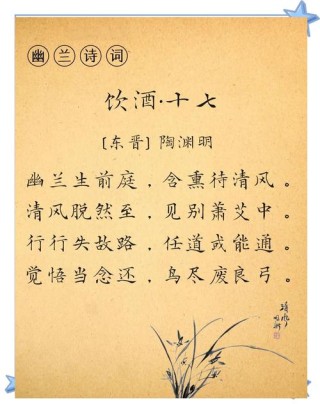 幽兰诗词
饮酒·十七
[东晋] 陶渊明
幽兰生前庭，含熏待清风。
清风脱然至，见别萧艾中。
行行失故路，任道或能通。
觉悟当念还，鸟尽废良弓。